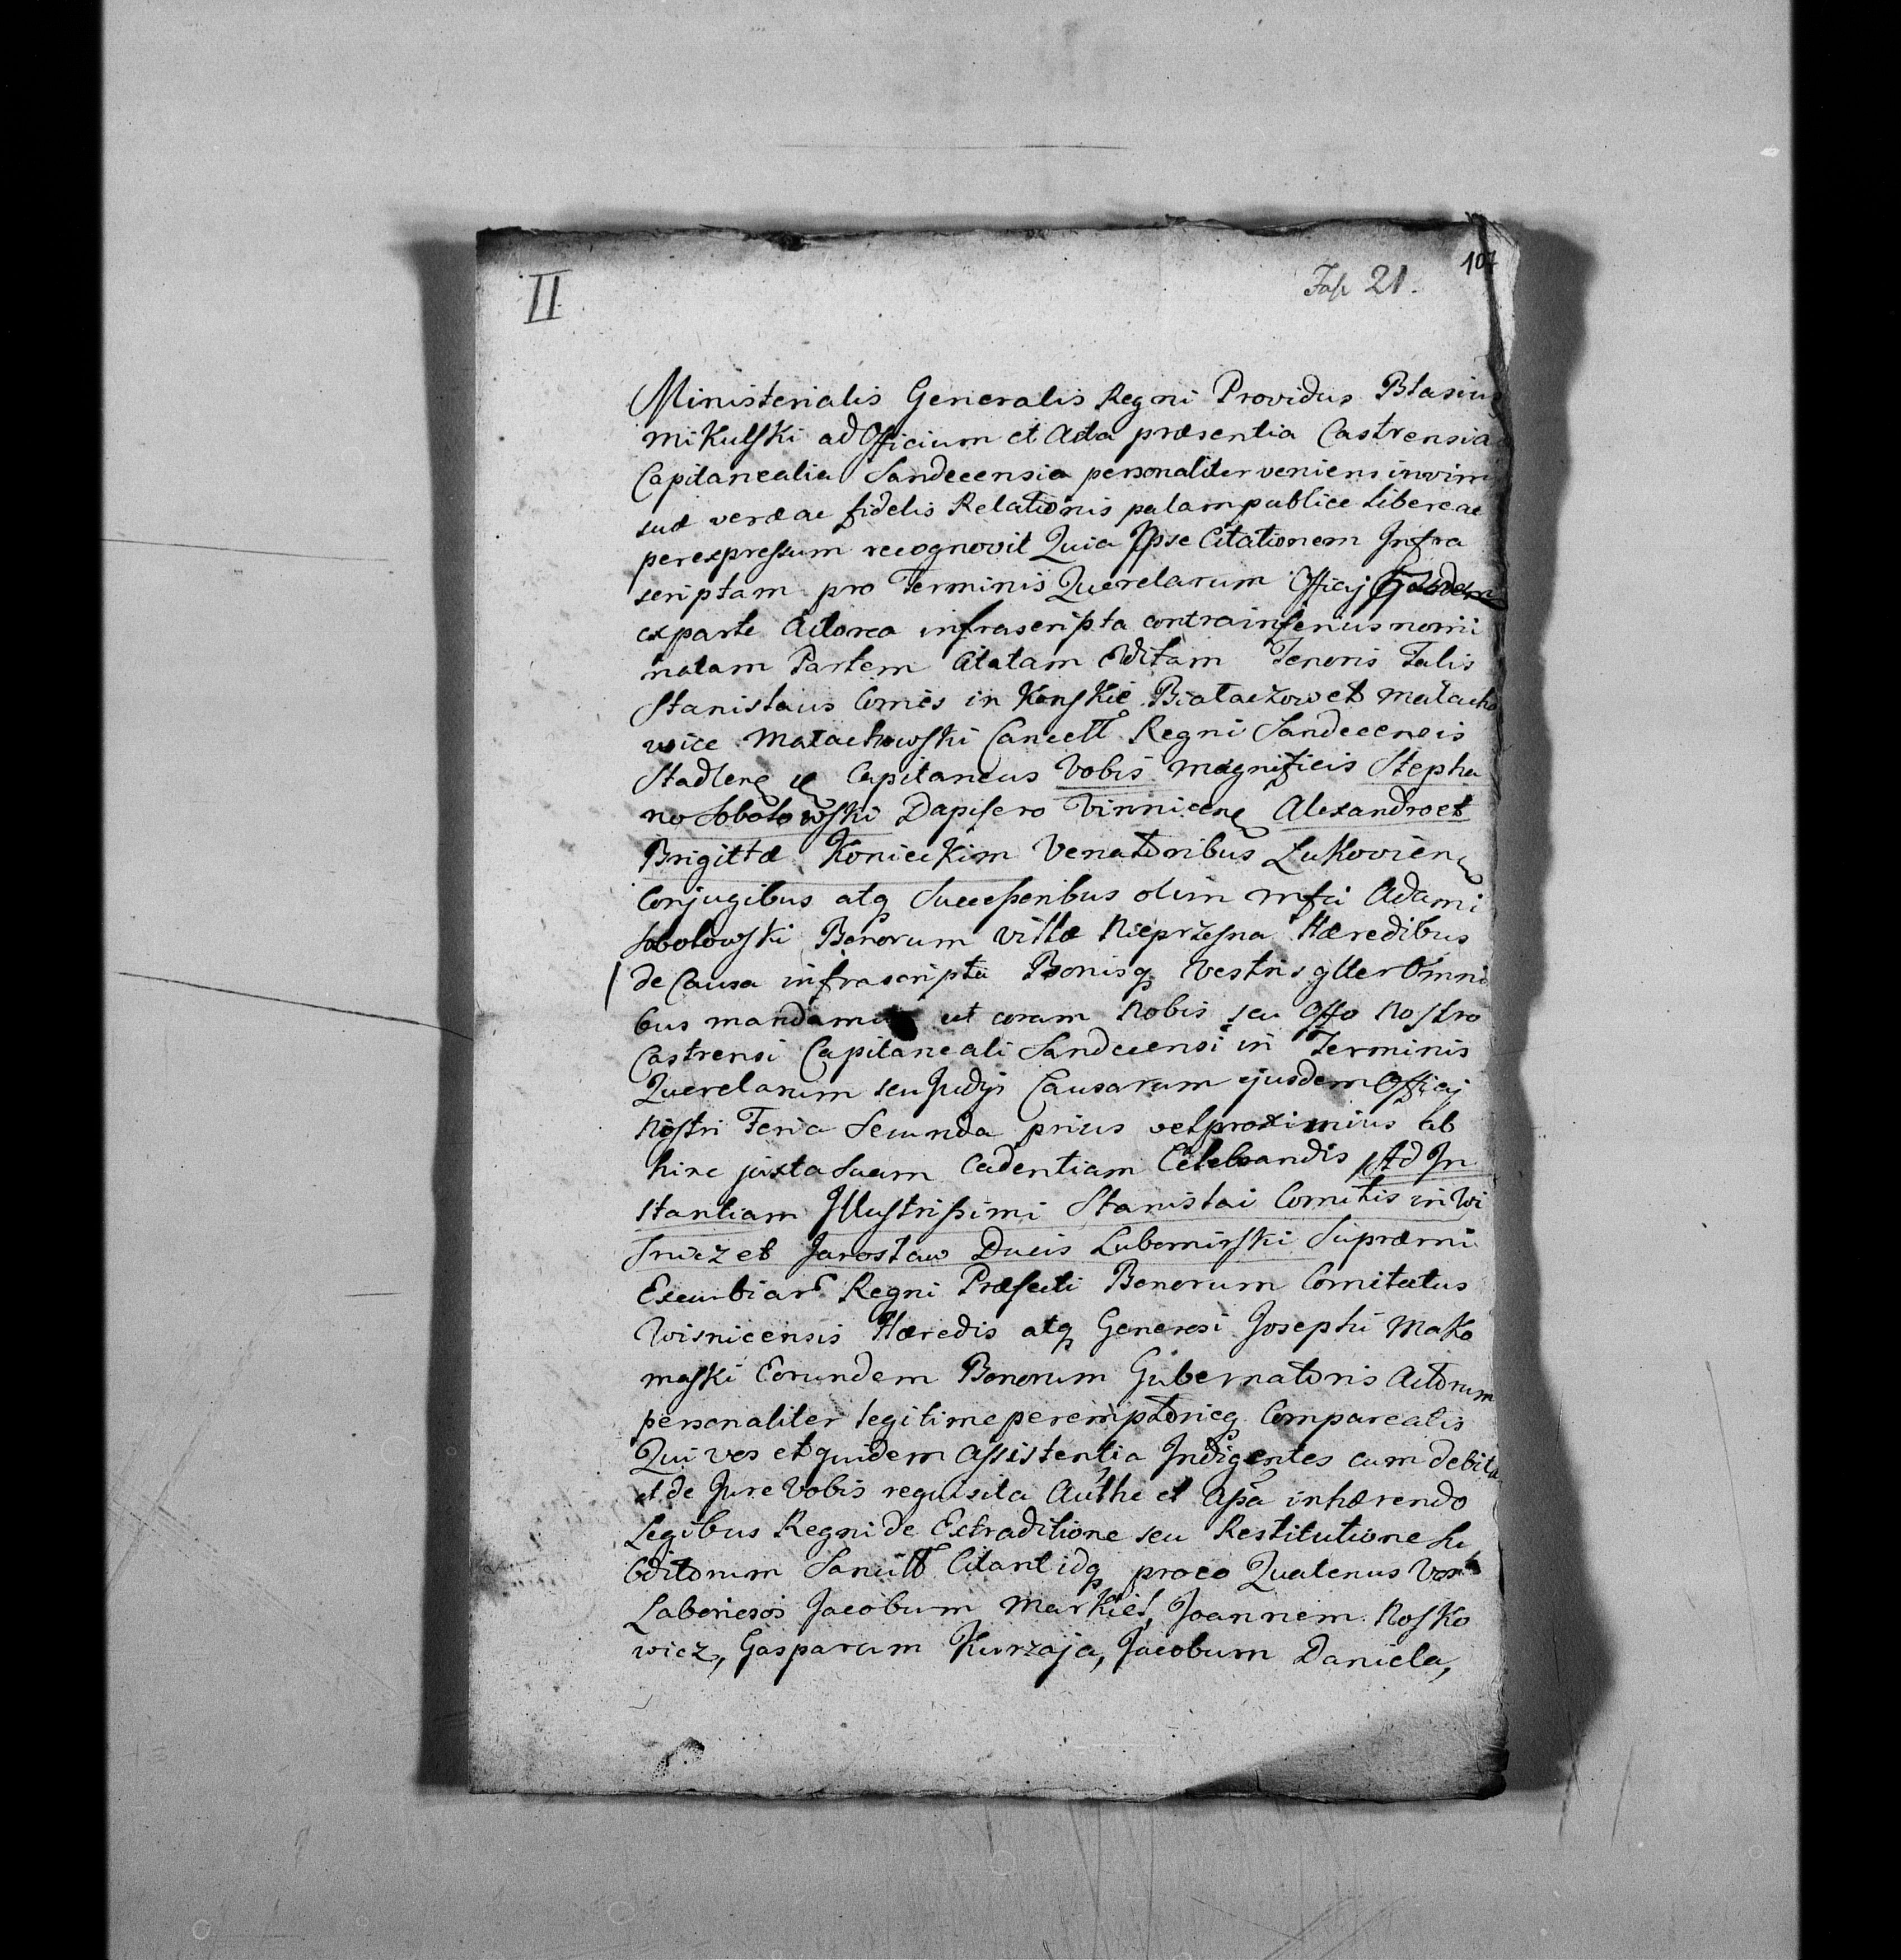 II
Fasc 21.
107
Ministerialis Generalis Regni Providus Blasius
Mikulski ad Officium et Acta præsentia Castrensia
Capitanealia Sandecensia personaliter veniens in vim
suæ veræ ac fidelis Relationis palam publice Libere ac
per expressum recognovit Quia Ipse Citationem Infra
scriptam pro Terminis Querelarum Officij Ejusdem
ex parte Actorea infrascripta contra inferius nomi
natam Partem Citatam Editam Tenoris Talis
Stanislaus Comes in Konskie Białaczow et Małacho
wice Małachowski Cancell Regni Sandecensis
Capitaneus Vobis Magnificis Stepha
no Sobolowski Dapifero Vinnicen Alexandro et
Brigittæ Konieckim Venatoribus Lukovien
Conjugibus atq Successoribus olim Mfci Adami
Sobolowski Bonorum Villæ Nieprzesna Hæredibus
de Causa infrascripta Bonisq Vestris gller Omni
bus mandamus ut coram Nobis seu Offo Nostro
Castrensi Capitaneali Sandecensi in Terminis
Querelarum seu Judijs Causarum ejusdem Officij
Nostri Feria Secunda prius vel proximius ab
hinc juxta suam Cadentiam Celebrandis Ad In
stantiam Illustrissimi Stanislai Comitis in Wi
snicz et Jarosław Ducis Lubomirski Supræmi
Excubiar Regni Præfecti Bonorum Comitatus
Wisnicensis Hæredis atq Generosi Josephi Mako
maski Eorundem Bonorum Gubernatoris Actorum
personaliter legitime peremptorieq Compareatis
Qui vos et quidem Assistentia Indigentes cum debita
et de Jure Vobis requisita Authe et Assa inhærendo
Legibus Regni de Extraditione seu Restitutione Su
bditorum Sancitt Citant idq pro eo Quatenus Vos
Laboriosos Jacobum Markiel, Joannem Nosko
wicz, Gasparum Kurzaja, Jacobum Daniela,